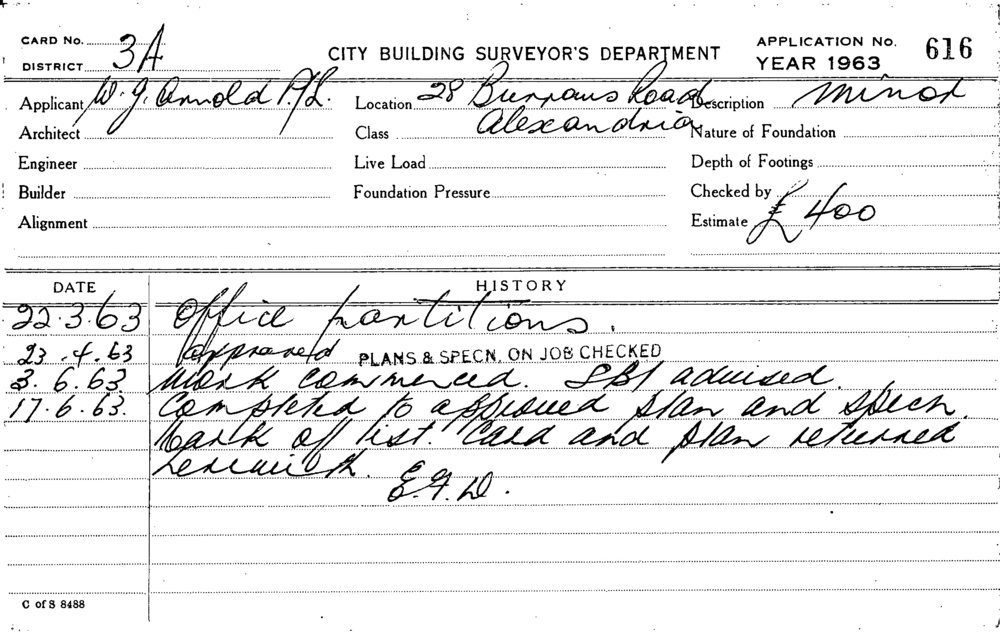 CARD No.
DISTRICT 3A
CITY BUILDING SURVEYOR'S DEPARTMENT
APPLICATION No. 616
YEAR 1963
Applicant W. J. Arnold P/L. Location 28 Burrows Road Description Minor
Architect Class Alexandria Nature of Foundation
Engineer Live Load Depth of Footings
Builder Foundation Pressure Checked by
Alignment Estimate £400
DATE HISTORY
22.3.63 Office partitions.
23.4.63 Approved PLANS & SPECN. ON JOB CHECKED
3.6.63 Work commenced. SBI advised.
17.6.63. Completed to approved plan and specn.
Mark off list. Card and plan returned
herewith.
E.F.D.
C of S 8488